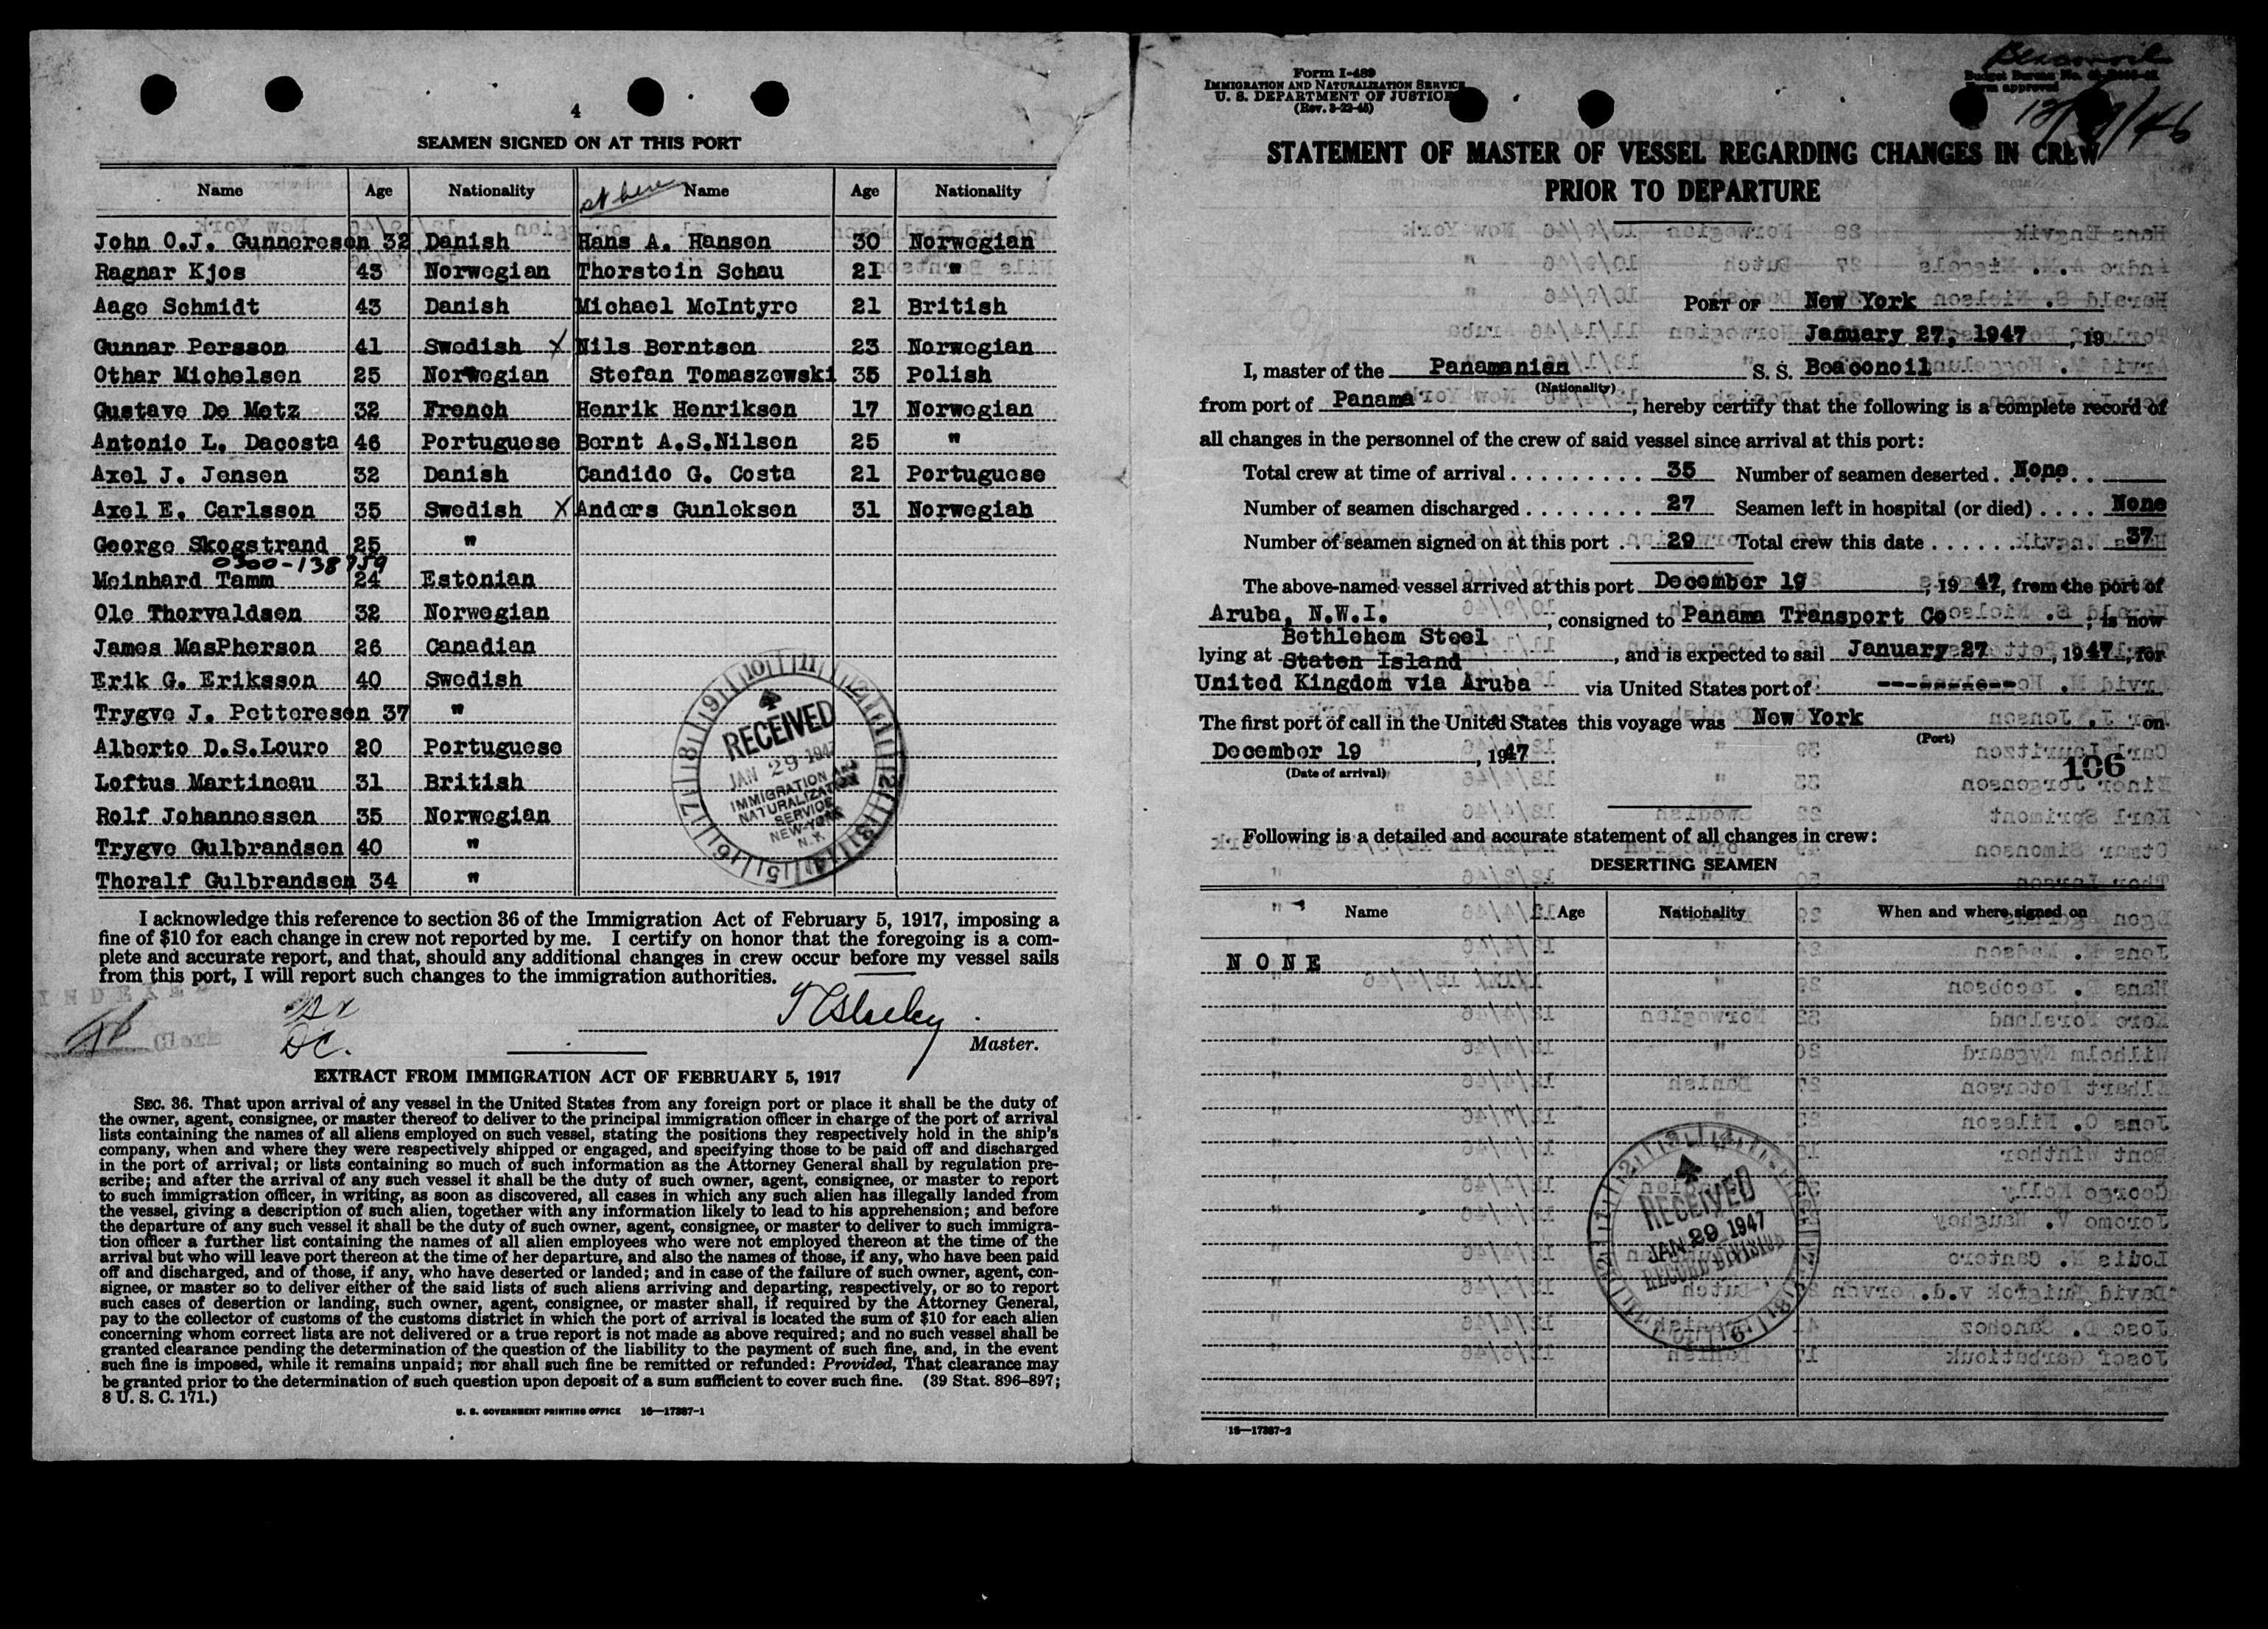 4
SEAMEN SIGNED ON AT THIS PORT
Name Age Nationality Name Age Nationality
John O.J. Gunnoreson 32 Danish Hans A. Hanson 30 Norwegian
Ragnar Kjos 43 Norwegian Thorstein Schau 21 "
Aage Schmidt 43 Danish Michael McIntyre 21 British
Gunnar Persson 41 Swedish X Nils Berntsen 23 Norwegian
Othar Michelsen 25 Norwegian Stefan Tomaszewski 35 Polish
Gustave De Metz 32 French Henrik Henriksen 17 Norwegian
Antonio L. Dacosta 46 Portuguese Bernt A.S.Nilsen 25 "
Axel J. Jensen 32 Danish Candido G. Costa 21 Portuguese
Axel E. Carlsson 35 Swedish X Anders Gunleksen 31 Norwegian
George Skogstrand 25 "
0300-138959
Meinhard Tamm 24 Estonian
Ole Thorvaldsen 32 Norwegian
James MasPherson 26 Canadian
Erik G. Eriksson 40 Swedish
Trygve J. Petteresen 37 "
Alberto D.S.Louro 20 Portuguese
Loftus Martineau 31 British
Rolf Johannessen 35 Norwegian
Trygve Gulbrandsen 40 "
Thoralf Gulbrandsen 34 "
RECEIVED
JAN 29 1947
IMMIGRATION AND
NATURALIZATION
SERVICE
NEW-YORK
N.Y.
I acknowledge this reference to section 36 of the Immigration Act of February 5, 1917, imposing a
fine of $10 for each change in crew not reported by me. I certify on honor that the foregoing is a com-
plete and accurate report, and that, should any additional changes in crew occur before my vessel sails
from this port, I will report such changes to the immigration authorities.
INDEXED
Master.
EXTRACT FROM IMMIGRATION ACT OF FEBRUARY 5, 1917
SEC. 36. That upon arrival of any vessel in the United States from any foreign port or place it shall be the duty of
the owner, agent, consignee, or master thereof to deliver to the principal immigration officer in charge of the port of arrival
lists containing the names of all aliens employed on such vessel, stating the positions they respectively hold in the ship's
company, when and where they were respectively shipped or engaged, and specifying those to be paid off and discharged
in the port of arrival; or lists containing so much of such information as the Attorney General shall by regulation pre-
scribe; and after the arrival of any such vessel it shall be the duty of such owner, agent, consignee, or master to report
to such immigration officer, in writing, as soon as discovered, all cases in which any such alien has illegally landed from
the vessel, giving a description of such alien, together with any information likely to lead to his apprehension; and before
the departure of any such vessel it shall be the duty of such owner, agent, consignee, or master to deliver to such immigra-
tion officer a further list containing the names of all alien employees who were not employed thereon at the time of the
arrival but who will leave port thereon at the time of her departure, and also the names of those, if any, who have been paid
off and discharged, and of those, if any, who have deserted or landed; and in case of the failure of such owner, agent, con-
signee, or master so to deliver either of the said lists of such aliens arriving and departing, respectively, or so to report
such cases of desertion or landing, such owner, agent, consignee, or master shall, if required by the Attorney General,
pay to the collector of customs of the customs district in which the port of arrival is located the sum of $10 for each alien
concerning whom correct lists are not delivered or a true report is not made as above required; and no such vessel shall be
granted clearance pending the determination of the question of the liability to the payment of such fine, and, in the event
such fine is imposed, while it remains unpaid; nor shall such fine be remitted or refunded: Provided, That clearance may
be granted prior to the determination of such question upon deposit of a sum sufficient to cover such fine. (39 Stat. 896-897;
8 U. S. C. 171.)
U. S. GOVERNMENT PRINTING OFFICE 16—17387-1
Form I-489
IMMIGRATION AND NATURALIZATION SERVICE
U. S. DEPARTMENT OF JUSTICE
(Rev. 3-22-45)
Beaconoil
Budget Bureau No.
Form approved
STATEMENT OF MASTER OF VESSEL REGARDING CHANGES IN CREW
PRIOR TO DEPARTURE
PORT OF New York
January 27, 1947, 19
I, master of the Panamanian S. S. Beaconoil
(Nationality)
from port of Panama, hereby certify that the following is a complete record of
all changes in the personnel of the crew of said vessel since arrival at this port:
Total crew at time of arrival 35 Number of seamen deserted None
Number of seamen discharged 27 Seamen left in hospital (or died) None
Number of seamen signed on at this port 29 Total crew this date 37
The above-named vessel arrived at this port December 19, 1947, from the port of
Aruba, N.W.I., consigned to Panama Transport Co; is now
Bethlehem Steel
lying at Staten Island, and is expected to sail January 27, 1947, for
United Kingdom via Aruba via United States port of ----------
The first port of call in the United States this voyage was New York on
(Port)
December 19, 1947
(Date of arrival)
106
Following is a detailed and accurate statement of all changes in crew:
DESERTING SEAMEN
Name Age Nationality When and where signed on
NONE
RECEIVED
JAN 29 1947
RECORD DIVISION
16—17387-2